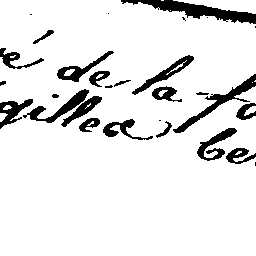 ré de la fo
gillea be